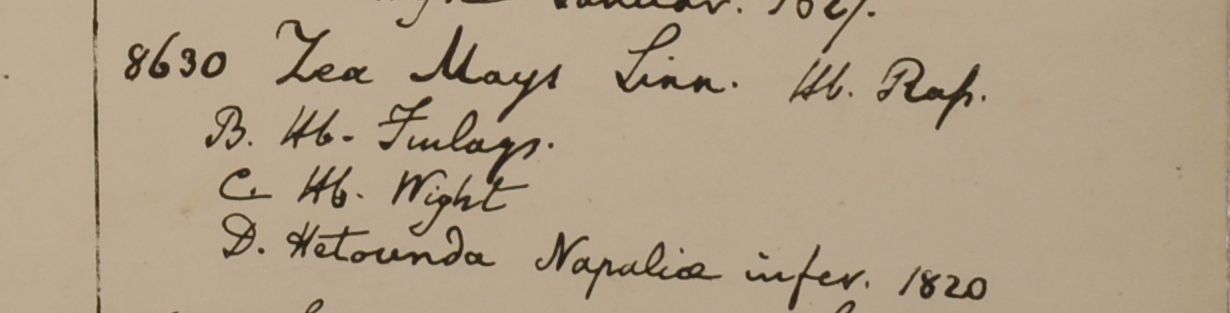 Januar. 182
8630 Zea Mays Linn. Hb. Rap.
B. Hb. Finlays.
C. Hb. Wight
D. Hetounda Napaliæ infer. 1820